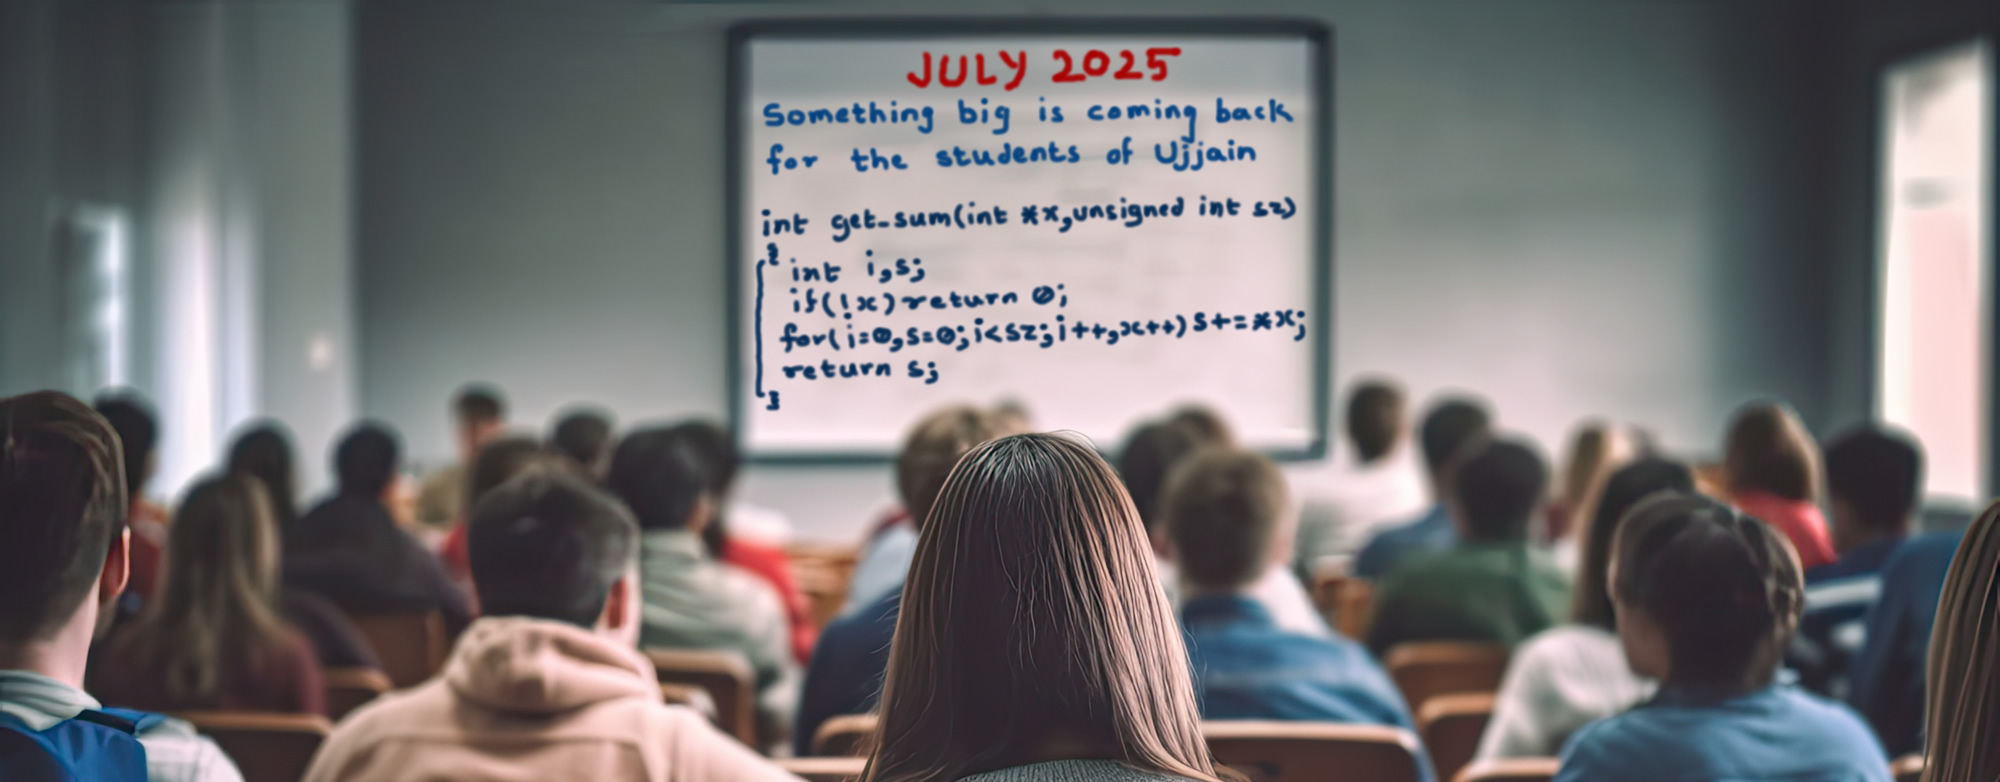 JULY 2025
Something big is coming back
for the students of Ujjain
int get_sum(int *x,unsigned int sz)
{
int i,s;
if(!x)return 0;
for(i=0,s=0;i<sz;i++,x++)s+=*x;
return s;
}